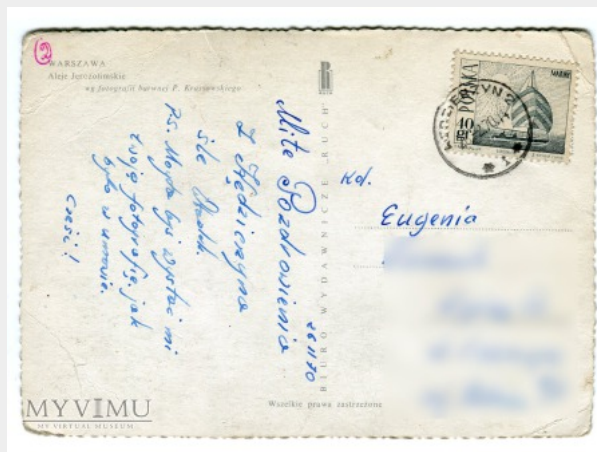 WARSZAWA
Aleje Jerozolimskie
wg fotografii barwnej P. Krassowskiego
BIURO WYDAWNICZE „RUCH”
Wszelkie prawa zastrzeżone
POLSKA
40 GR
KĘDZIERZYN 2
Kol.
Eugenia
Miłe Pozdrowienia
z Kędzierzyna
śle
Ps. Mogła byś wysłać mi
twoją fotografię. jak
było w umowie.
cześć!
26 II 70
MYVIMU
MY VIRTUAL MUSEUM